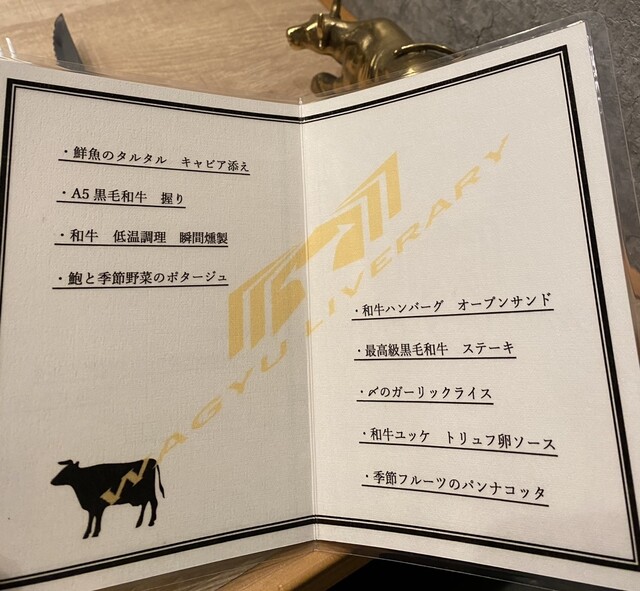 ・鮮魚のタルタル　キャビア添え
・A5黒毛和牛　握り
・和牛　低温調理　瞬間燻製
・鮑と季節野菜のポタージュ
WAGYU LIVERARY
・和牛ハンバーグ　オープンサンド
・最高級黒毛和牛　ステーキ
・〆のガーリックライス
・和牛ユッケ　トリュフ卵ソース
・季節フルーツのパンナコッタ